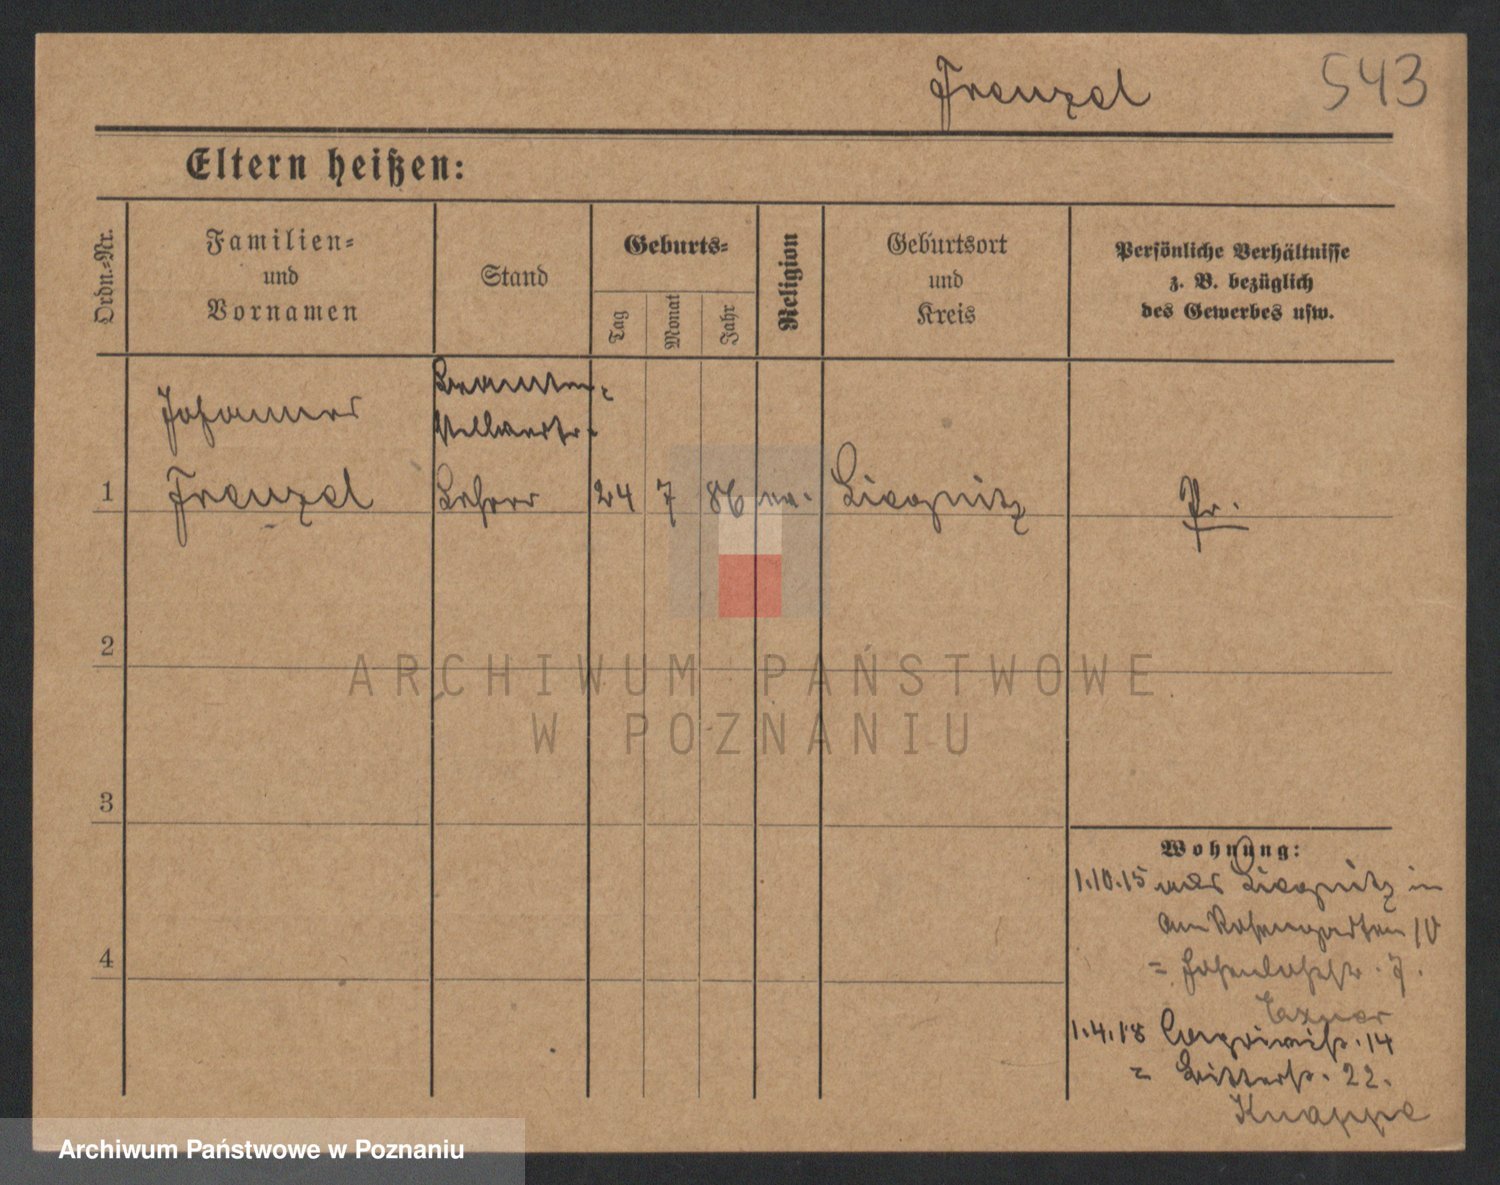 Frenzel 543
Eltern heißen:
Ordn.-Nr.
Familien-
und
Vornamen
Stand
Geburts-
Tag
Monat
Jahr
Religion
Geburtsort
und
Kreis
Persönliche Verhältnisse
z. B. bezüglich
des Gewerbes usw.
Johannes
Beamten-
stellvertr.
1 Frenzel Lehrer 24 7 86 ev. Liegnitz Pr.
2
ARCHIWUM PAŃSTWOWE
W POZNANIU
3
Wohnung:
1.10.15 aus Liegnitz in
Am Rosengarten 10
4
= Hohenlohestr. 7.
Exner
1.4.18 14
= Ritterstr. 22.
Knappe
Archiwum Państwowe w Poznaniu